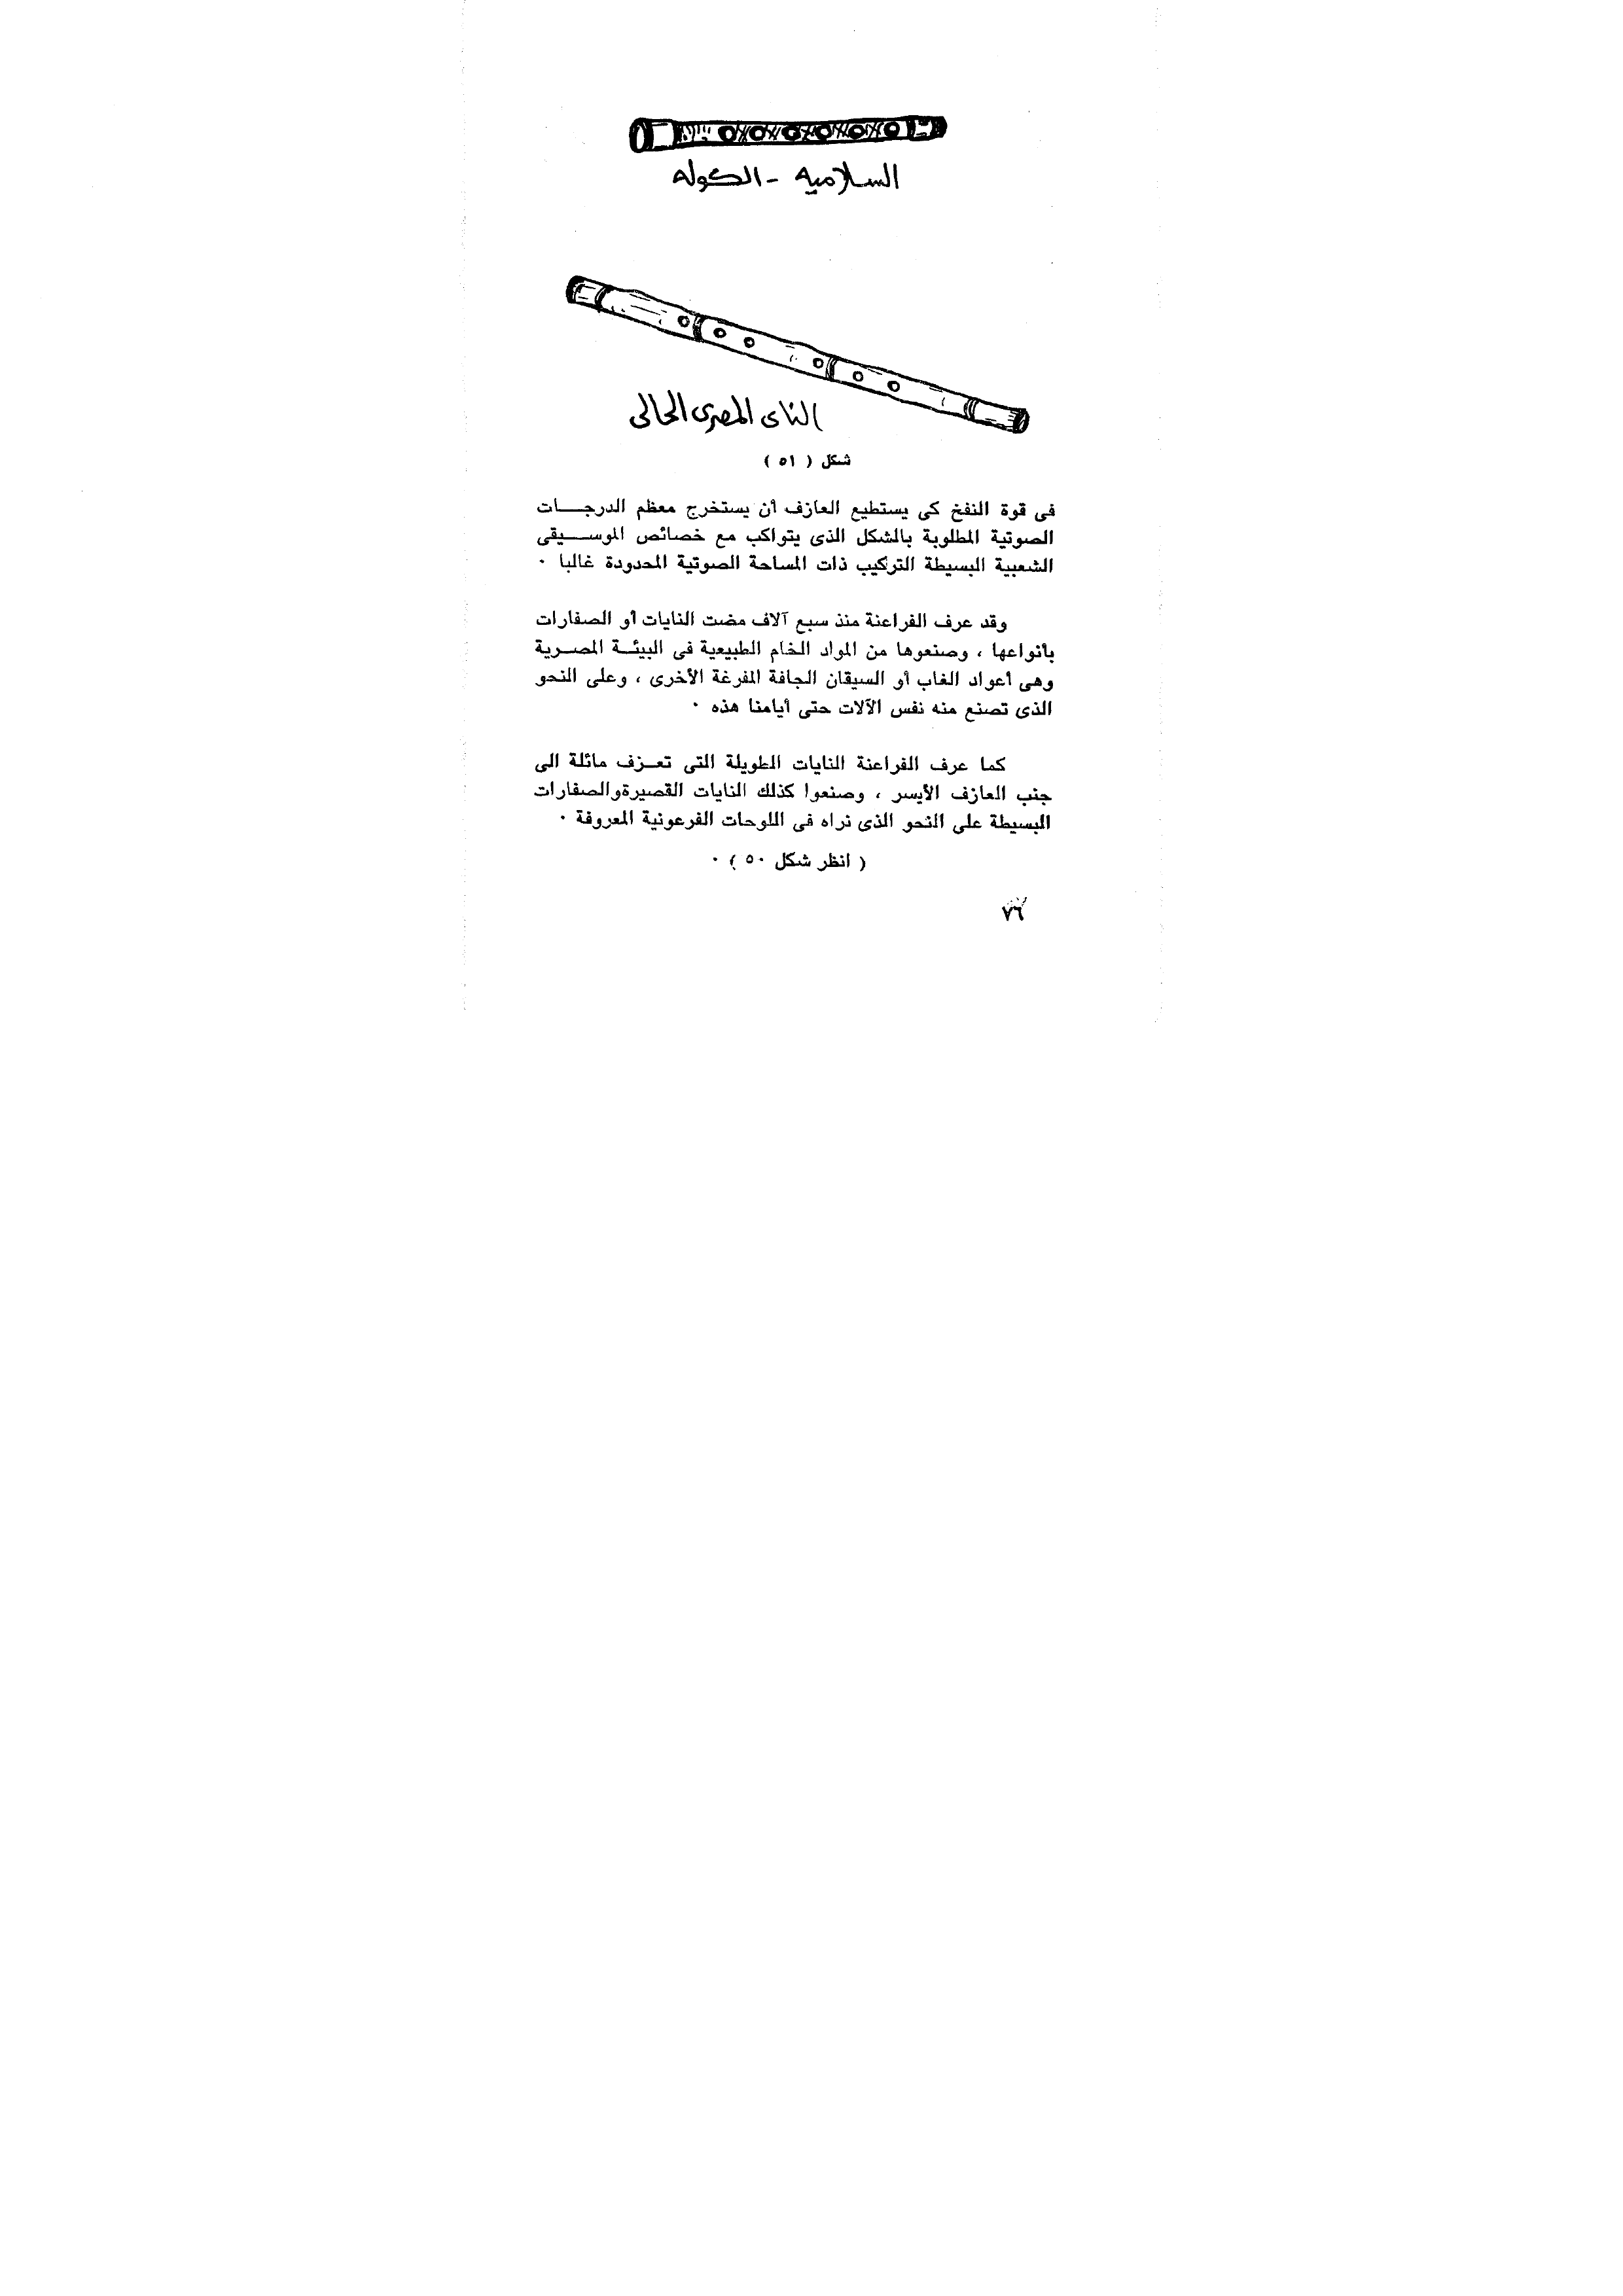 السلاميه - الكوله
الناى المصرى الحالى
شكل ( ٥١ )
فى قوة النفخ كى يستطيع العازف أن يستخرج معظم الدرجات
الصوتية المطلوبة بالشكل الذى يتواكب مع خصائص الموسيقى
الشعبية البسيطة التركيب ذات المساحة الصوتية المحدودة غالبا ٠
وقد عرف الفراعنة منذ سبع آلاف مضت النايات أو الصفارات
بأنواعها ، وصنعوها من المواد الخام الطبيعية فى البيئة المصرية
وهى أعواد الغاب أو السيقان الجافة المفرغة الأخرى ، وعلى النحو
الذى تصنع منه نفس الآلات حتى أيامنا هذه ٠
كما عرف الفراعنة النايات الطويلة التى تعزف مائلة الى
جنب العازف الأيسر ، وصنعوا كذلك النايات القصيرةوالصفارات
البسيطة على النحو الذى نراه فى اللوحات الفرعونية المعروفة ٠
( انظر شكل ٥٠ ) ٠
٧٦